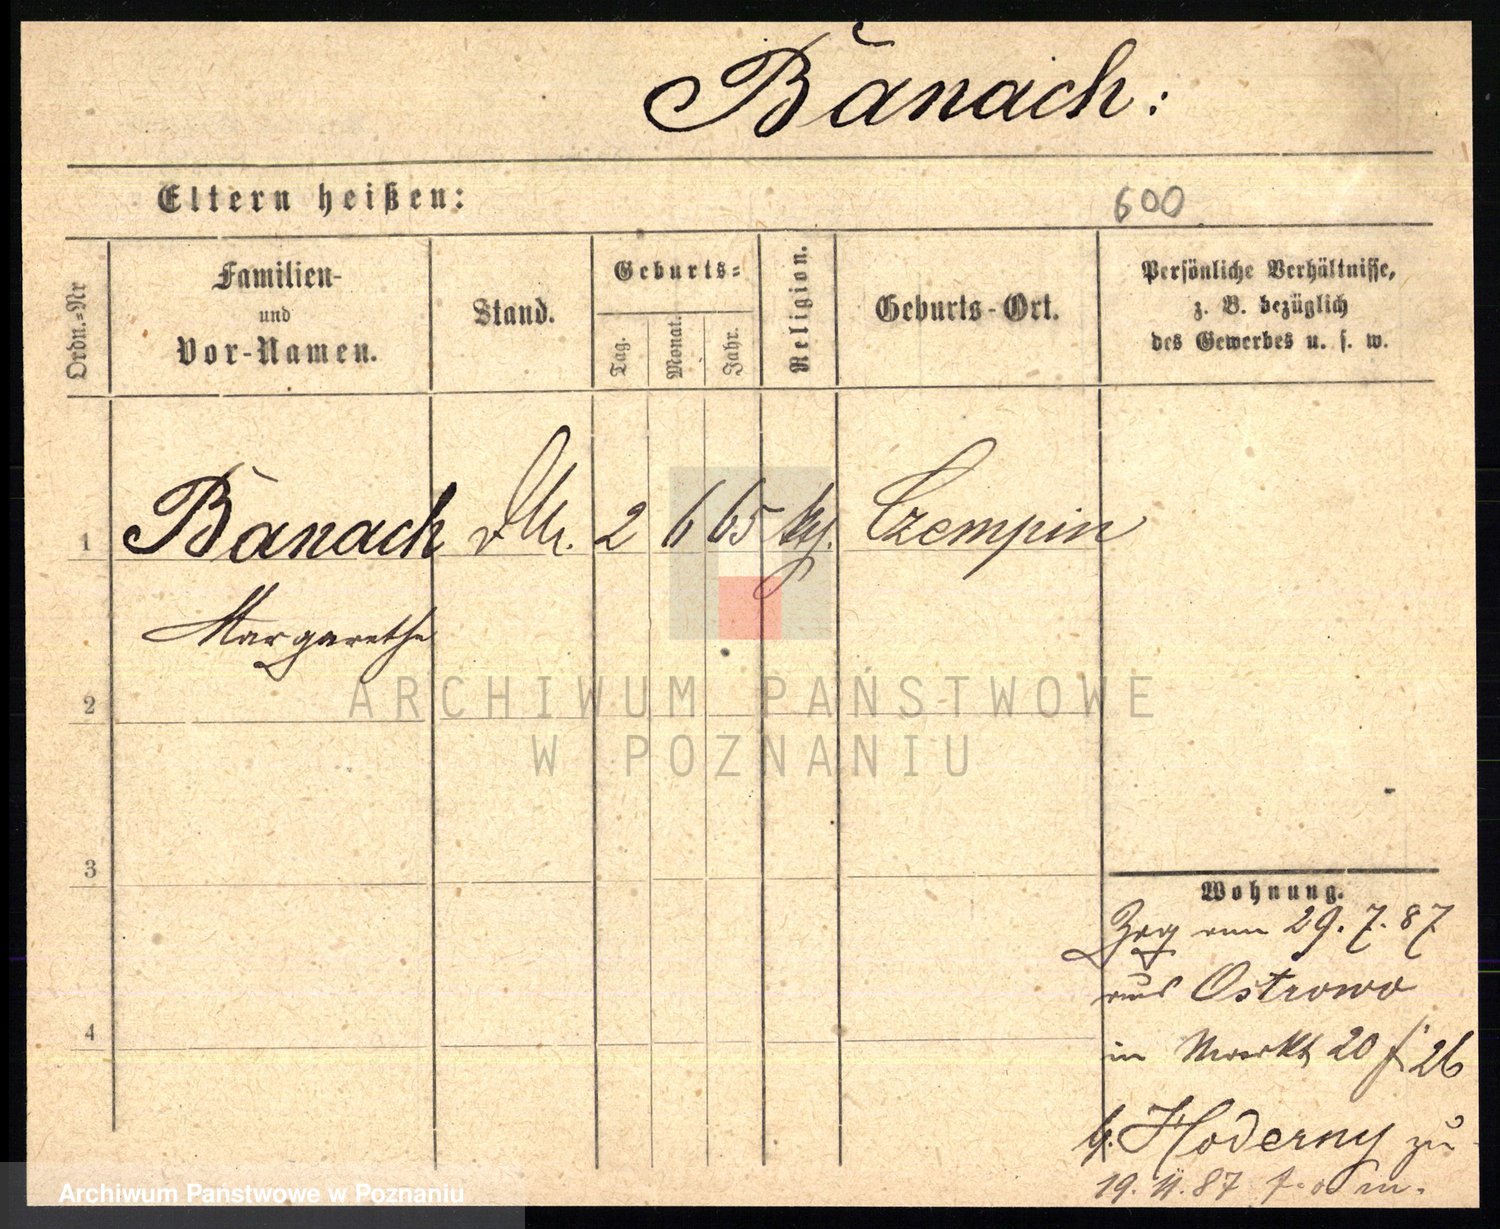 Banach:
Eltern heißen:
600
Ordn.-Nr
Familien-
und
Vor-Namen.
Stand.
Geburts-
Tag.
Monat.
Jahr.
Religion.
Geburts-Ort.
Persönliche Verhältnisse,
z. B. bezüglich
des Gewerbes u. s. w.
1
Banach
2
6
65
Czempin
Margarethe
2
3
4
Wohnung.
Zzg 29.7.87
aus Ostrowo
in 20 26
Hoderny zu
19. 11. 87
ARCHIWUM PAŃSTWOWE
W POZNANIU
Archiwum Państwowe w Poznaniu